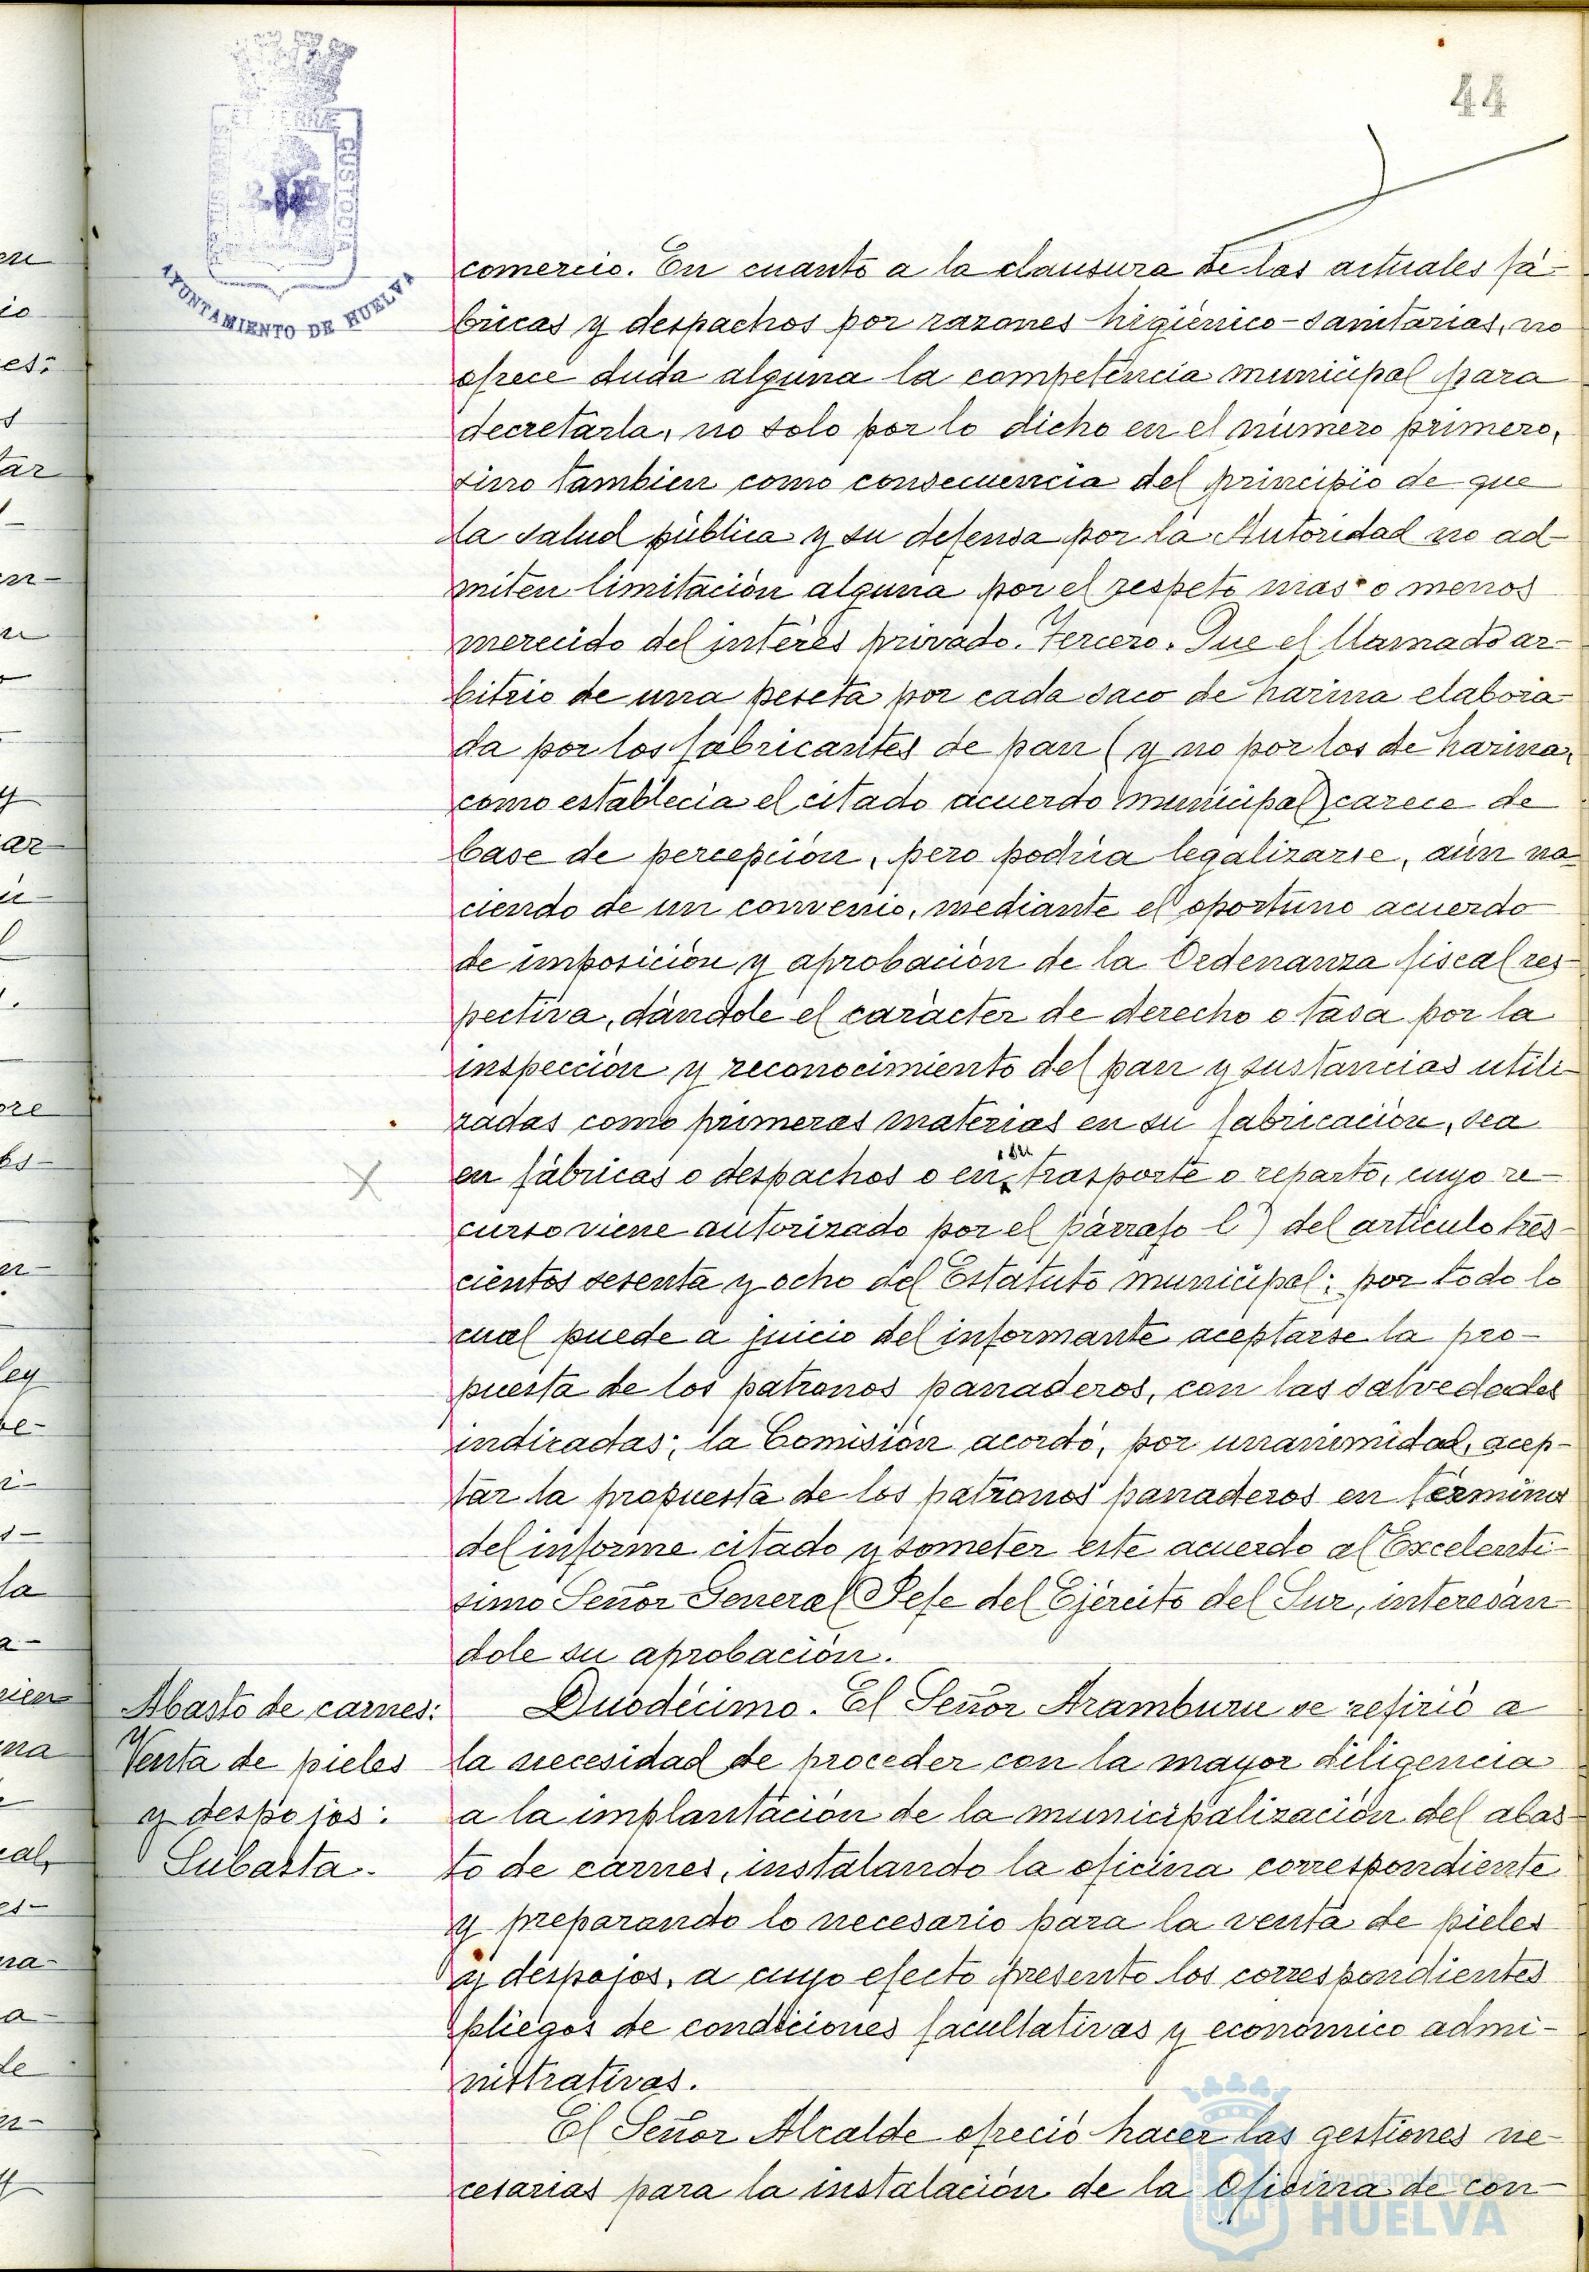 44
CUSTOD
AYUNTAMIENTO DE HUELVA
comercio. En cuanto a la clausura de las actuales fá-
bricas y despachos por razones higiénico-sanitarias, no
ofrece duda alguna la competencia municipal para
decretarla, no solo por lo dicho en el número primero,
sino tambien como consecuencia del principio de que
la salud pública y su defensa por la Autoridad no ad-
miten limitación alguna por el respeto mas o menos
merecido del interés privado. Tercero. Que el llamado ar-
bitrio de una peseta por cada saco de harina elabora-
da por los fabricantes de pan (y no por los de harina,
como establecia el citado acuerdo municipal) carece de
base de percepción, pero podria legalizarse, aún na-
ciendo de un convenio, mediante el oportuno acuerdo
de imposición y aprobación de la Ordenanza fiscal res-
pectiva, dándole el carácter de derecho o tasa por la
inspección y reconocimiento del pan y sustancias utili-
zadas como primeras materias en su fabricación, sea
en fábricas o despachos o en su trasporte o reparto, cuyo re-
curso viene autorizado por el párrafo l) del artículo tres-
cientos sesenta y ocho del Estatuto municipal; por todo lo
cual puede a juicio del informante aceptarse la pro-
puesta de los patronos panaderos, con las salvedades
indicadas; la Comisión acordó, por unanimidad, acep-
tar la propuesta de los patronos panaderos en términos
del informe citado y someter este acuerdo al Excelentí-
simo Señor General Jefe del Ejército del Sur, interesán-
dole su aprobación.
Abasto de carnes:
Venta de pieles
y despojos:
Subasta.
Duodécimo. El Señor Aramburu se refirió a
la necesidad de proceder con la mayor diligencia
a la implantación de la municipalización del abas-
to de carnes, instalando la oficina correspondiente
y preparando lo necesario para la venta de pieles
y despojos, a cuyo efecto presento los correspondientes
pliegos de condiciones facultativas y económico admi-
nistrativas.
El Señor Alcalde ofreció hacer las gestiones ne-
cesarias para la instalación de la Oficina de con-
Ayuntamiento de
HUELVA